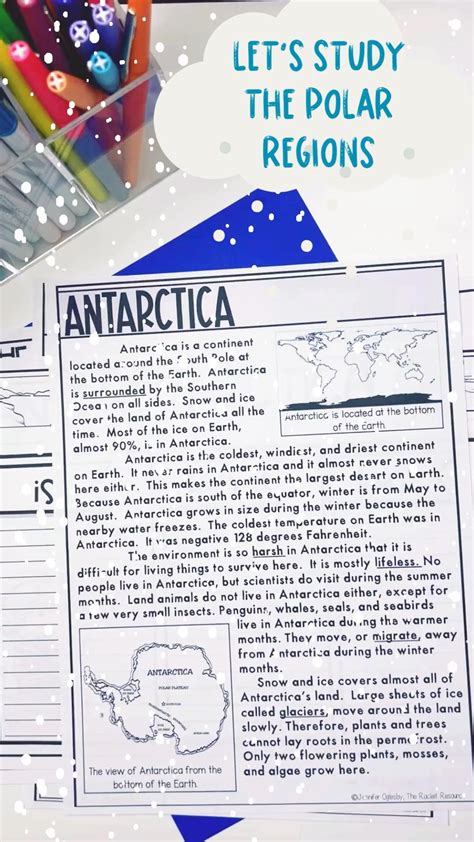 LET'S STUDY
THE POLAR
REGIONS
ANTARCTICA
Antarctica is a continent
located around the South Pole at
the bottom of the Earth. Antarctica
is surrounded by the Southern
Ocean on all sides. Snow and ice
cover the land of Antarctica all the
time. Most of the ice on Earth,
almost 90%, is in Antarctica.
Antarctica is located at the bottom
of the Earth
Antarctica is the coldest, windiest, and driest continent
on Earth. It never rains in Antarctica and it almost never snows
here either. This makes the continent the largest desert on Earth.
Because Antarctica is south of the equator, winter is from May to
August. Antarctica grows in size during the winter because the
nearby water freezes. The coldest temperature on Earth was in
Antarctica. It was negative 128 degrees Fahrenheit.
The environment is so harsh in Antarctica that it is
difficult for living things to survive here. It is mostly lifeless. No
people live in Antarctica, but scientists do visit during the summer
months. Land animals do not live in Antarctica either, except for
a few very small insects. Penguins, whales, seals, and seabirds
live in Antarctica during the warmer
months. They move, or migrate, away
from Antarctica during the winter
months.
Snow and ice covers almost all of
Antarctica's land. Large sheets of ice
called glaciers, move around the land
slowly. Therefore, plants and trees
cannot lay roots in the permafrost.
Only two flowering plants, mosses,
and algae grow here.
ANTARCTICA
POLAR PLATEAU
The view of Antarctica from the
bottom of the Earth
©Jennifer Oglesby, The Rocket Resource
is